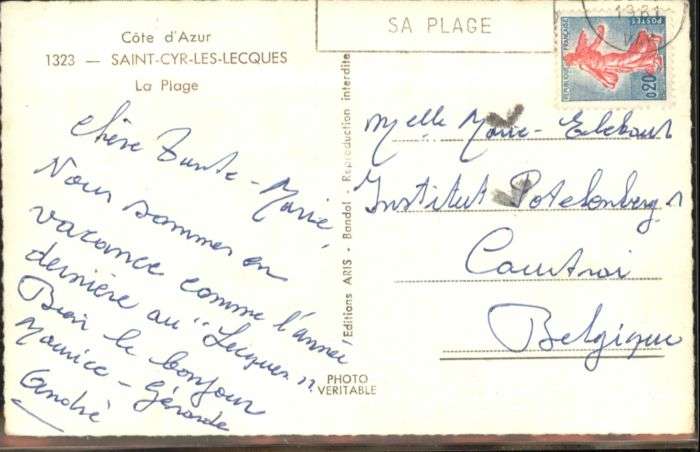 Côte d'Azur
1323 — SAINT-CYR-LES-LECQUES
La Plage
SA PLAGE
1961
REPUBLIQUE FRANÇAISE
POSTES
0,20
Chère Tante-Marie,
Nous sommes en
vacance comme l'année
dernière au "Lecques".
Bien le bonjour
Maurice - Gérarde
André
Editions ARIS - Bandol - Reproduction interdite
PHOTO
VERITABLE
Melle Marie-
Institut
Courtrai
Belgique